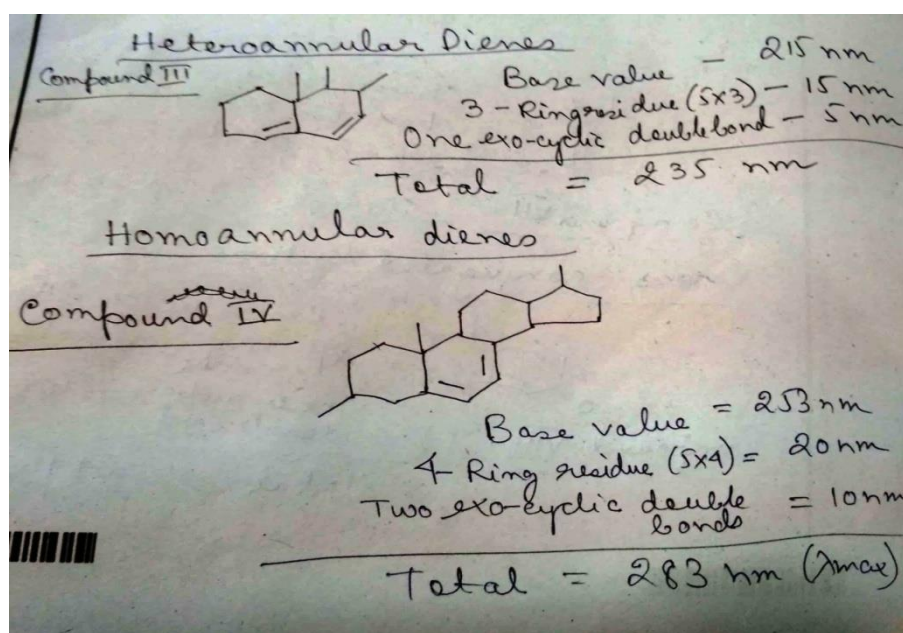 Heteroannular Dienes
Compound III
Base value - 215 nm
3 - Ring residue (5x3) - 15 nm
One exo-cyclic doublebond - 5 nm
Total = 235 nm
Homoannular dienes
Compound IV
Base value = 253 nm
4 Ring residue (5x4) = 20 nm
Two exo-cyclic double bonds = 10 nm
Total = 283 nm (λmax)